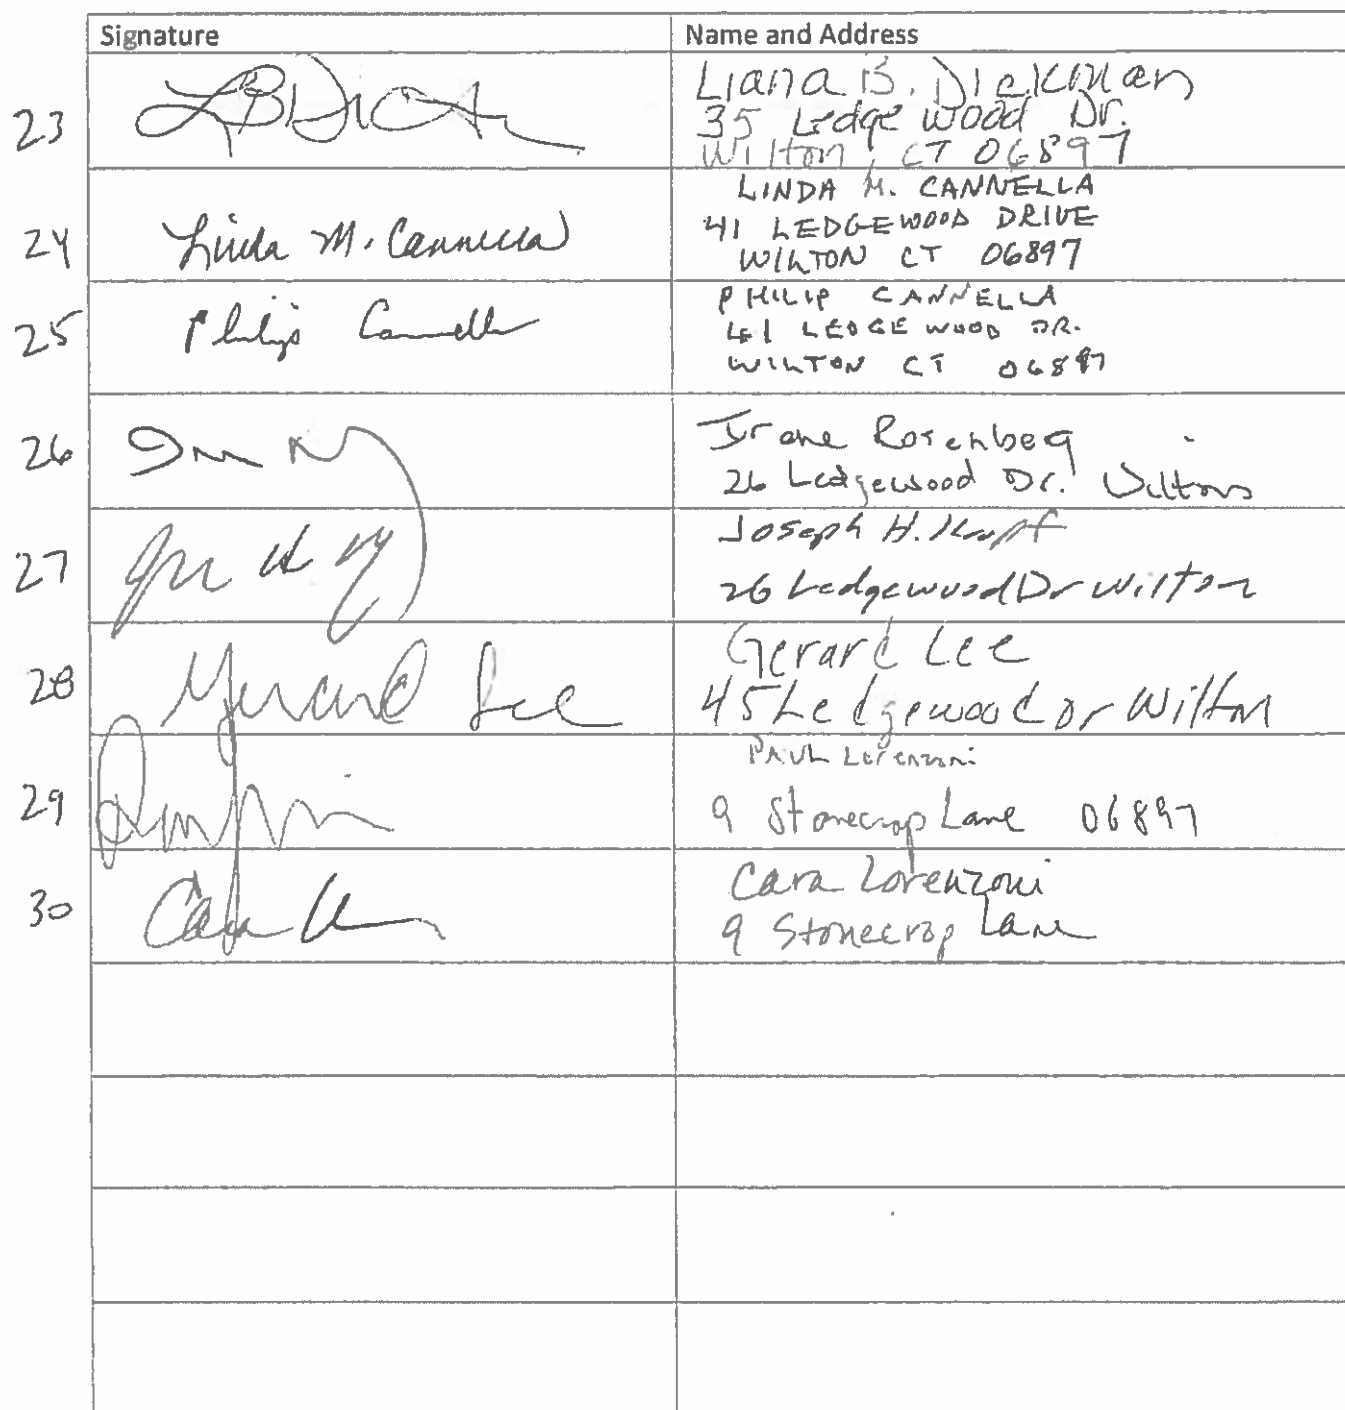 Signature Name and Address
23 Liana B. Dickman
35 Ledgewood Dr.
Wilton, CT 06897
24 Linda M. Cannella LINDA M. CANNELLA
41 LEDGEWOOD DRIVE
WILTON CT 06897
25 Philip Cannella PHILIP CANNELLA
41 LEDGEWOOD DR.
WILTON CT 06897
26 Rosenberg
26 Ledgewood Dr. Wilton
27 Joseph H.
26 Ledgewood Dr Wilton
28 Gerard Lee Gerard Lee
45 Ledgewood Dr Wilton
29 Paul Lorenzoni
9 Stonecrop Lane 06897
30 Cara Lorenzoni
9 Stonecrop Lane